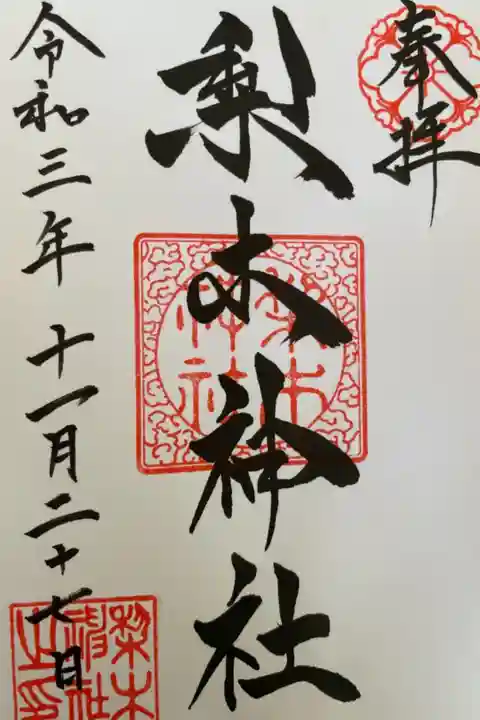 奉拝
梨木神社
令和三年十一月二十七日
梨木
神社